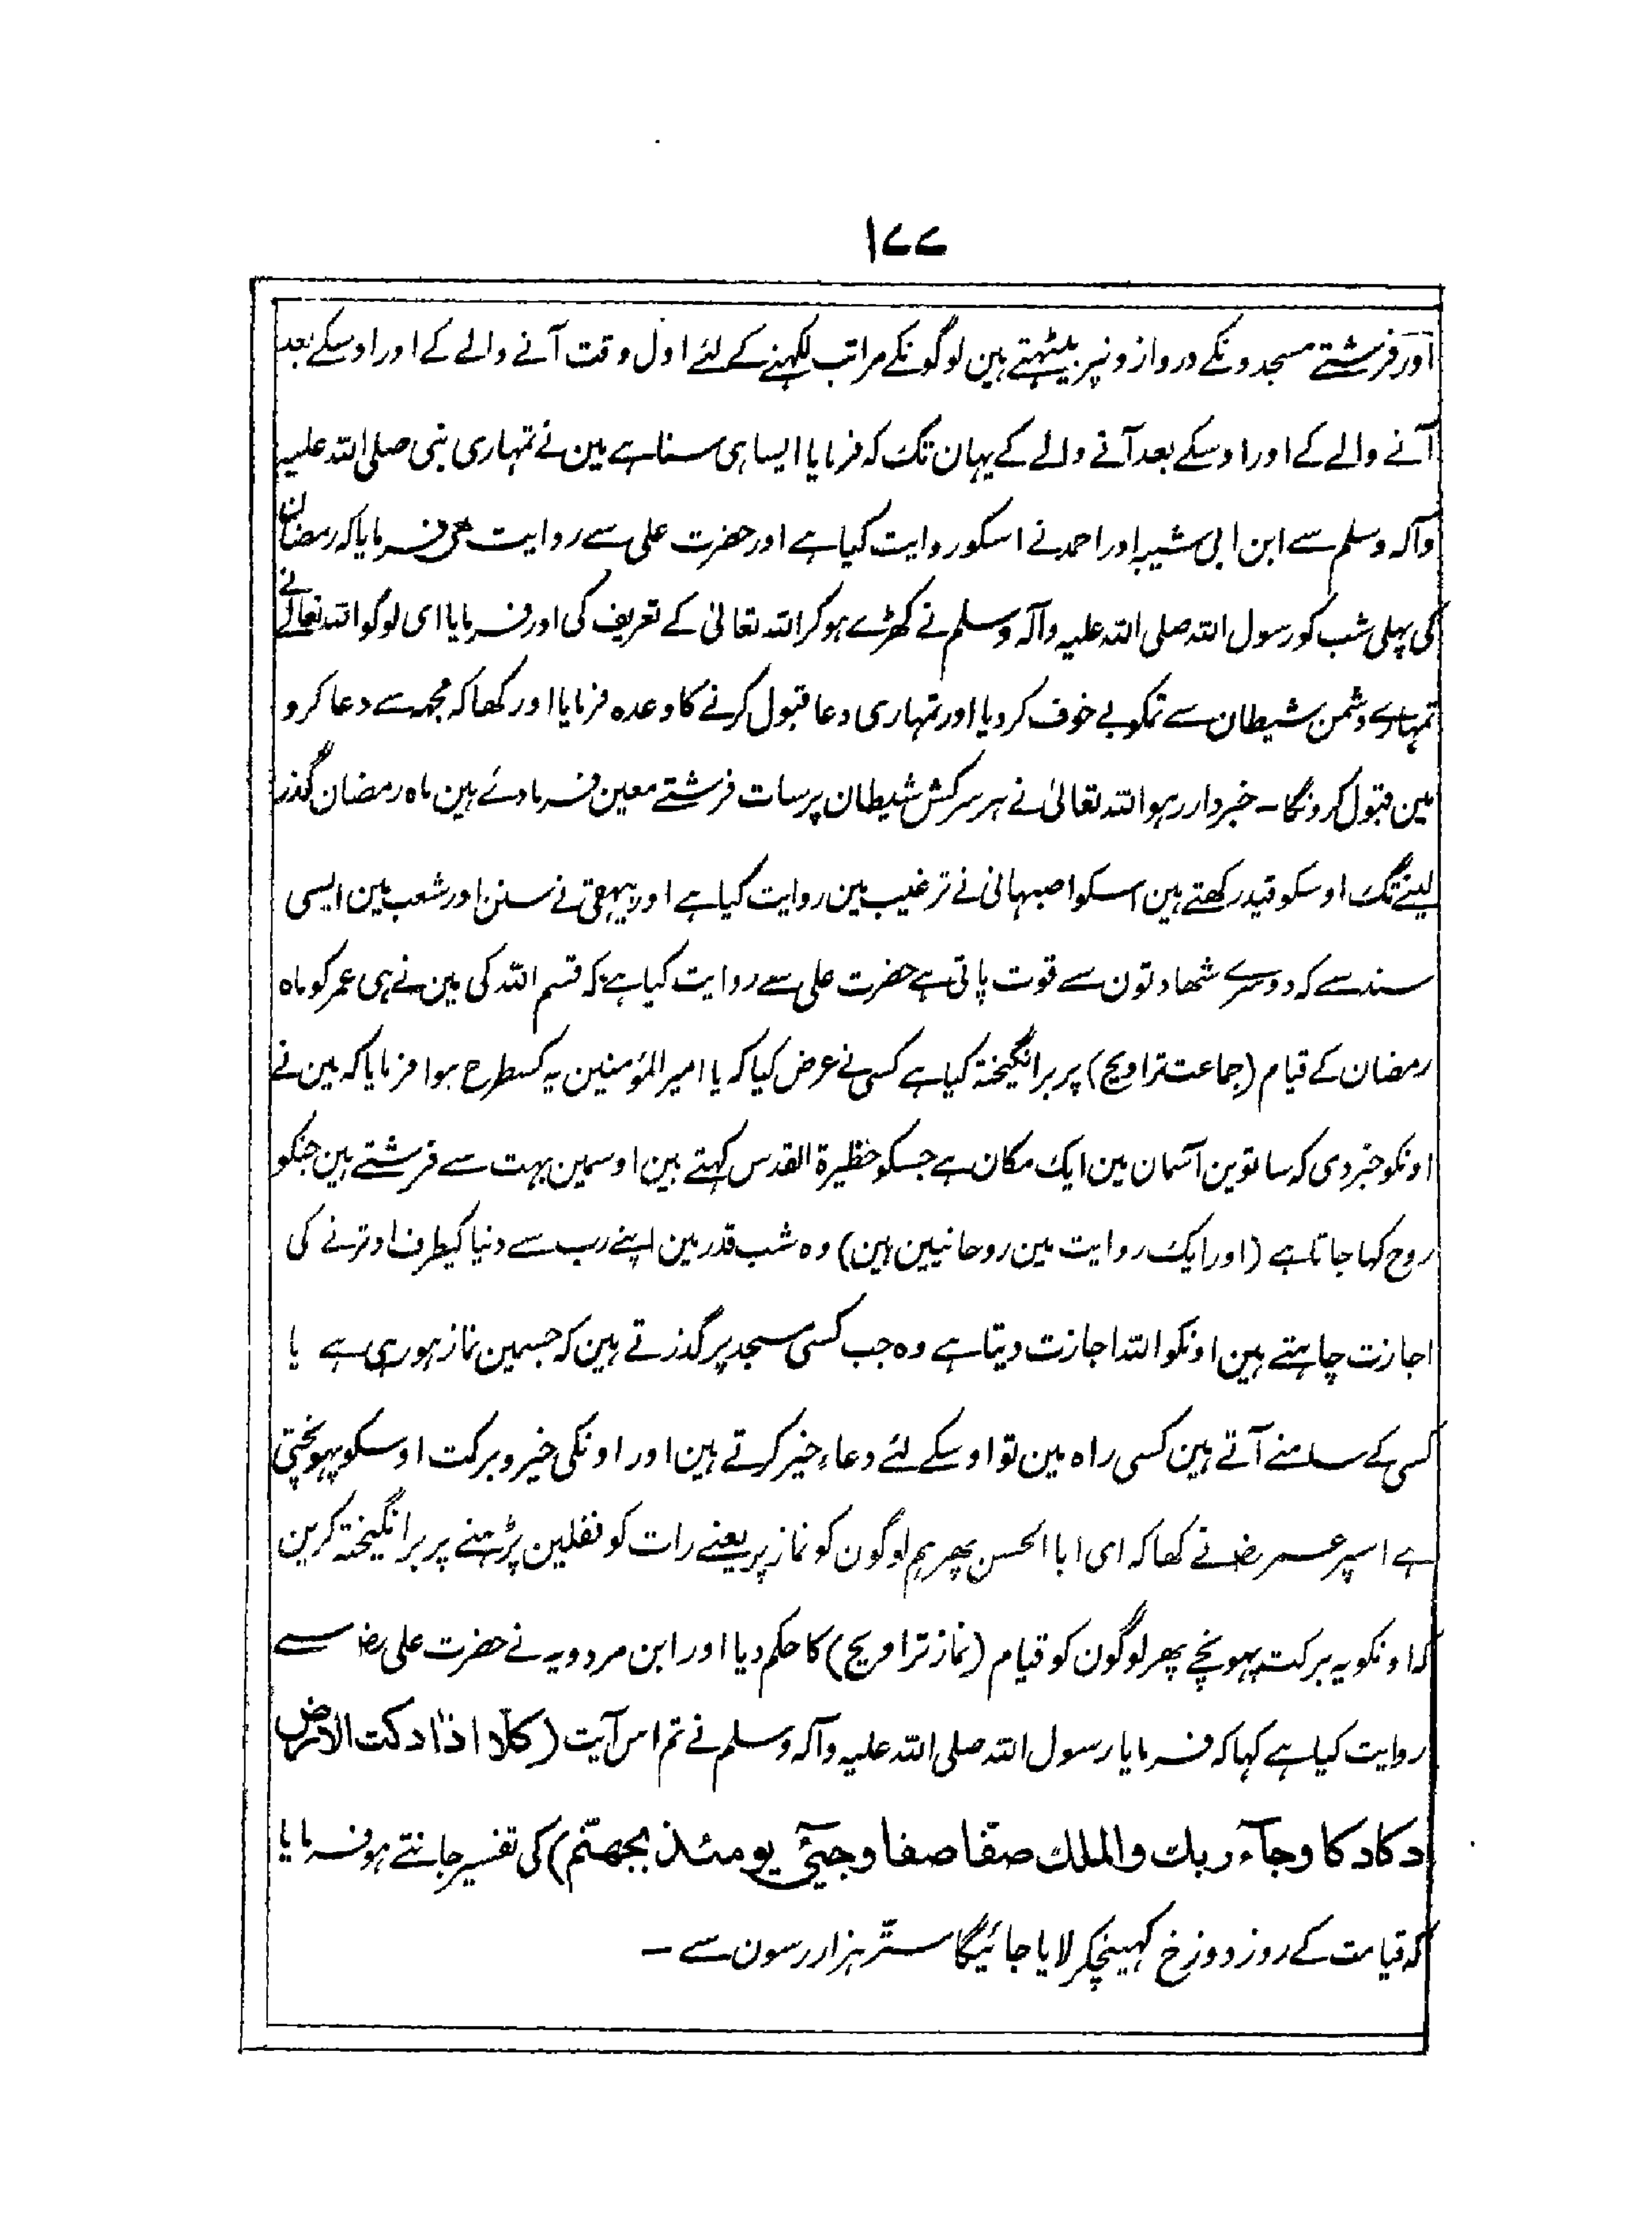 ۱۷۷
اور فرشتے مسجدونکے دروازونپر بیٹہتے ہین لوگونکے مراتب لکہنے کے لئے اول وقت آنے والے کے اور اوسکے بعد
آنے والے کے اور اوسکے بعد آنے والے کے یہان تک کہ فرمایا ایسا ہی سنا ہے مین نے تمہاری نبی صلی اللہ علیہ
وآلہ وسلم سے ابن ابی شیبہ اور احمد نے اسکو روایت کیا ہے اور حضرت علی سے روایت ہی فرمایا کہ رمضان
کی پہلی شب کو رسول اللہ صلی اللہ علیہ وآلہ وسلم نے کھڑے ہوکر اللہ تعالیٰ کے تعریف کی اور فرمایا ای لوگو اللہ تعالیٰ نے
تمہارے دشمن شیطان سے تمکو بے خوف کر دیا اور تمہاری دعا قبول کرنے کا وعدہ فرمایا اور کھا کہ مجہہ سے دعا کرو
مین قبول کرونگا ۔ خبردار رہو اللہ تعالیٰ نے ہر سرکش شیطان پر سات فرشتے معین فرمادئے ہین ماہ رمضان گذر
لینے تک اوسکو قید رکھتے ہین اسکو اصبہانی نے ترغیب مین روایت کیا ہے اور بیہقی نے سنن اور شعب مین ایسی
سند سے کہ دوسرے شھادتون سے قوت پاتی ہے حضرت علی سے روایت کیا ہے کہ قسم اللہ کی مین نے ہی عمر کو ماہ
رمضان کے قیام (جماعت تراویح) پر برانگیختہ کیا ہے کسی نے عرض کیا کہ یا امیر المؤمنین یہ کسطرح ہوا فرمایا کہ مین نے
اونکو خبر دی کہ ساتوین آسمان مین ایک مکان ہے جسکو حظیرۃ القدس کہتے ہین اوسمین بہت سے فرشتے ہین جنکو
روح کہا جاتا ہے (اور ایک روایت مین روحانیین ہین) وہ شب قدر مین اپنے رب سے دنیا کیطرف اوترنے کی
اجازت چاہتے ہین اونکو اللہ اجازت دیتا ہے وہ جب کسی مسجد پر گذرتے ہین کہ جسمین نماز ہورہی ہے یا
کسی کے سامنے آتے ہین کسی راہ مین تو اوسکے لئے دعاء خیر کرتے ہین اور اونکی خیر و برکت اوسکو پہونچتی
ہے اسپر عمر رضؓ نے کھا کہ ای ابا الحسن پھر ہم لوگون کو نماز پر یعنے رات کو نفلین پڑہنے پر برانگیختہ کرین
کہ اونکو یہ برکت پہونچے پھر لوگون کو قیام (نماز تراویح) کا حکم دیا اور ابن مردویہ نے حضرت علی رضؓ سے
روایت کیا ہے کہا کہ فرمایا رسول اللہ صلی اللہ علیہ وآلہ وسلم نے تم اس آیت (کلّا اذا دکت الارض
دکا دکا وجآء ربك والملك صفّا صفا وجیئ یومئذ بجھنّم) کی تفسیر جانتے ہو فرمایا
کہ قیامت کے روز دوزخ کہینچکر لایا جائیگا ستّر ہزار رسون سے ۔